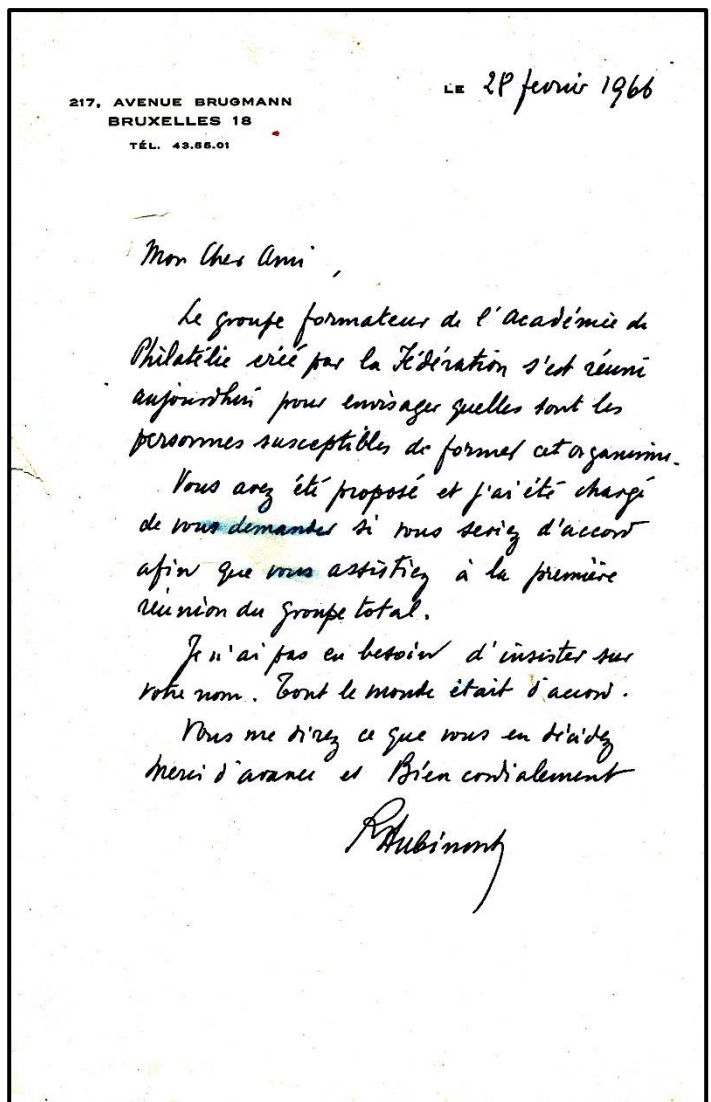 217, AVENUE BRUGMANN
BRUXELLES 18
TÉL. 43.55.01
LE 28 fevrier 1966
Mon Cher Ami,
Le groupe formateur de l'Académie de
Philatélie créé par la Fédération s'est réuni
aujourdhui pour envisager quelles sont les
personnes susceptibles de former cet organisme.
Vous avez été proposé et j'ai été chargé
de vous demander si vous seriez d'accord
afin que vous assistiez à la première
réunion du groupe total.
Je n'ai pas eu besoin d'insister sur
votre nom. Tout le monde était d'accord.
Vous me direz ce que vous en décidez
Merci d'avance et Bien cordialement
RHubinont